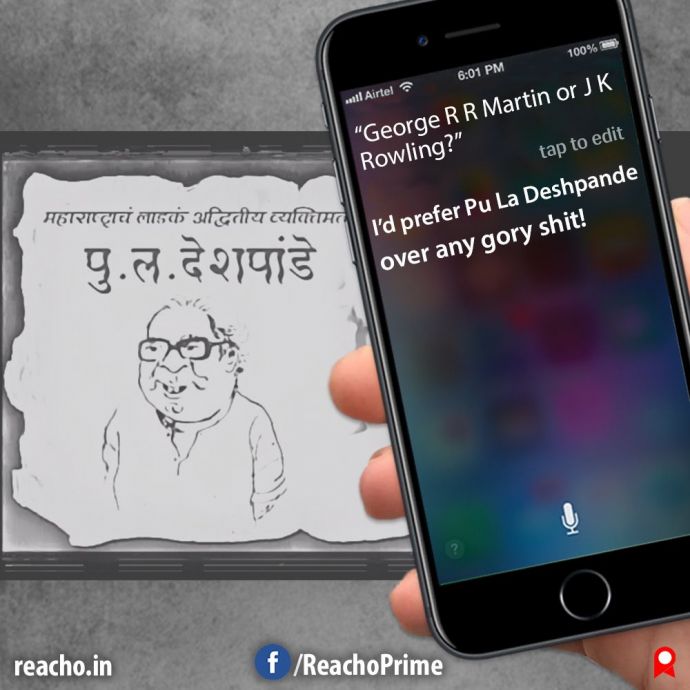 महाराष्ट्राचं लाडकं अद्वितीय
पु.ल.देशपांडे
Airtel 6:01 PM 100%
“George R R Martin or J K
Rowling?”
tap to edit
I’d prefer Pu La Deshpande
over any gory shit!
?
reacho.in
f /ReachoPrime